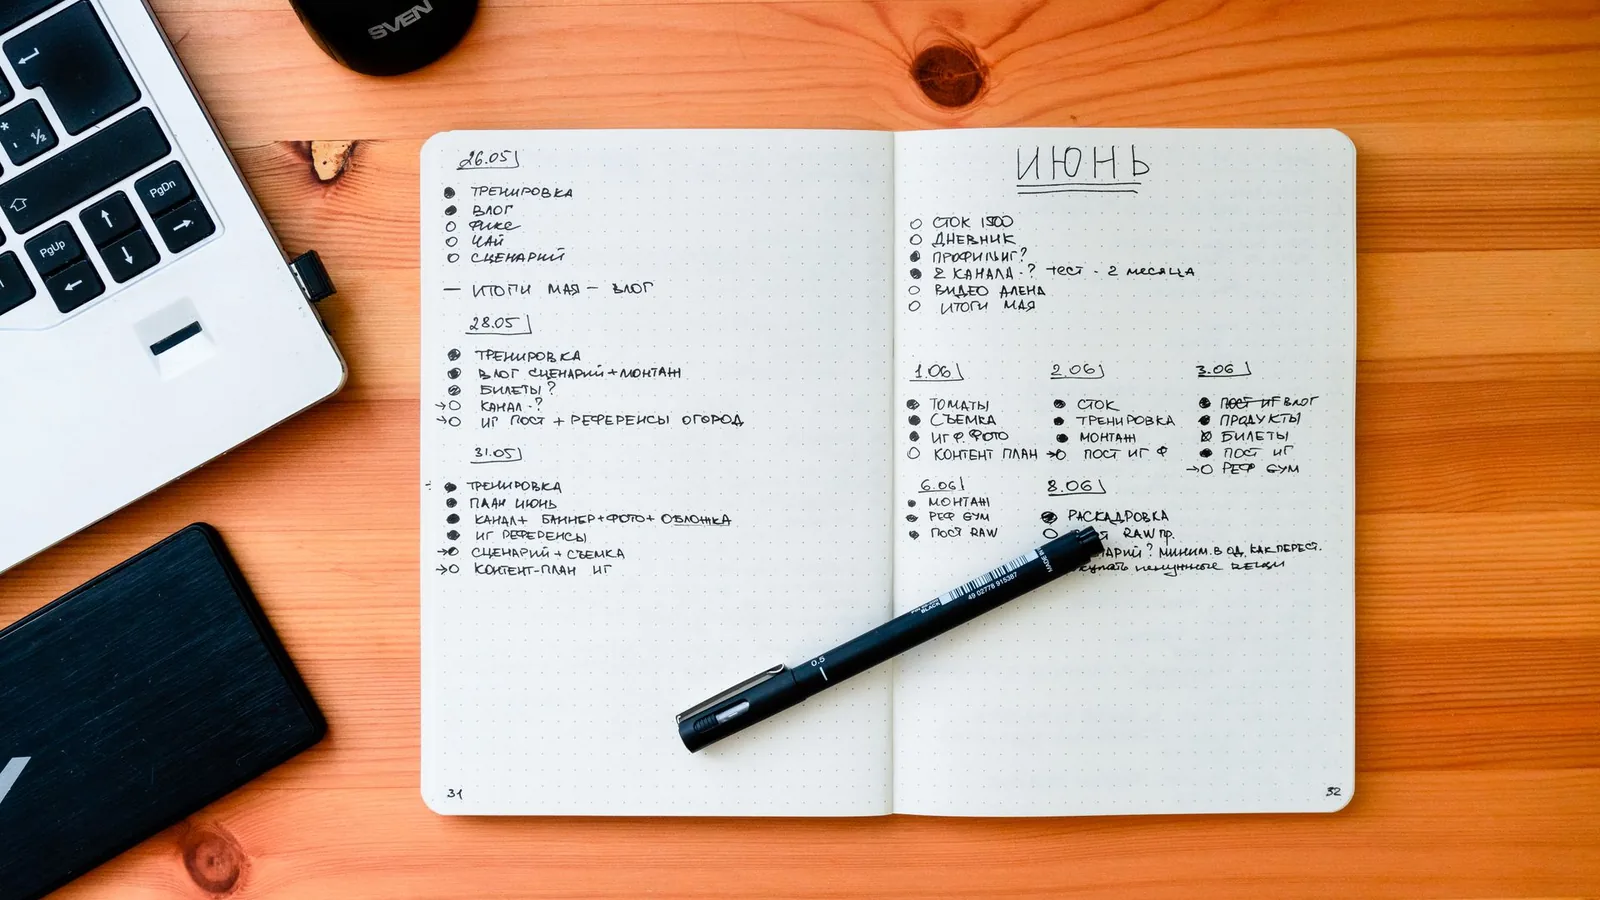 SVEN
½
PgDn
PgUp
26.05
ТРЕНИРОВКА
ВЛОГ
ФИКС
ЧАЙ
СЦЕНАРИЙ
— ИТОГИ МАЯ — ВЛОГ
28.05
ТРЕНИРОВКА
ВЛОГ СЦЕНАРИЙ+МОНТАЖ
БИЛЕТЫ?
→ КАНАЛ-?
→ ИГ ПОСТ + РЕФЕРЕНСЫ ОГОРОД
31.05
ТРЕНИРОВКА
ПЛАН ИЮНЬ
КАНАЛ+ БАННЕР+ФОТО+ ОБЛОЖКА
ИГ РЕФЕРЕНСЫ
→ СЦЕНАРИЙ + СЪЕМКА
→ КОНТЕНТ-ПЛАН ИГ
31
ИЮНЬ
СТОК 1500
ДНЕВНИК
ПРОФИЛЬ ИГ?
2 КАНАЛА-? тест - 2 месяца
ВИДЕО АЛЕНА
ИТОГИ МАЯ
1.06
ТОМАТЫ
СЪЕМКА
ИГ Ф. ФОТО
КОНТЕНТ ПЛАН
2.06
СТОК
ТРЕНИРОВКА
МОНТАЖ
→ ПОСТ ИГ Ф
3.06
ПОСТ ИГ ВЛОГ
ПРОДУКТЫ
БИЛЕТЫ
ПОСТ ИГ
→ РЕФ GYM
6.06
МОНТАЖ
РЕФ GYM
ПОСТ RAW
8.06
РАСКАДРОВКА
RAW ПР.
? МИНИМ. В ОД. КАК ПЕРЕСТ.
ненужные вещи
32
0.5
BLACK
49 02778 915387
MADE IN